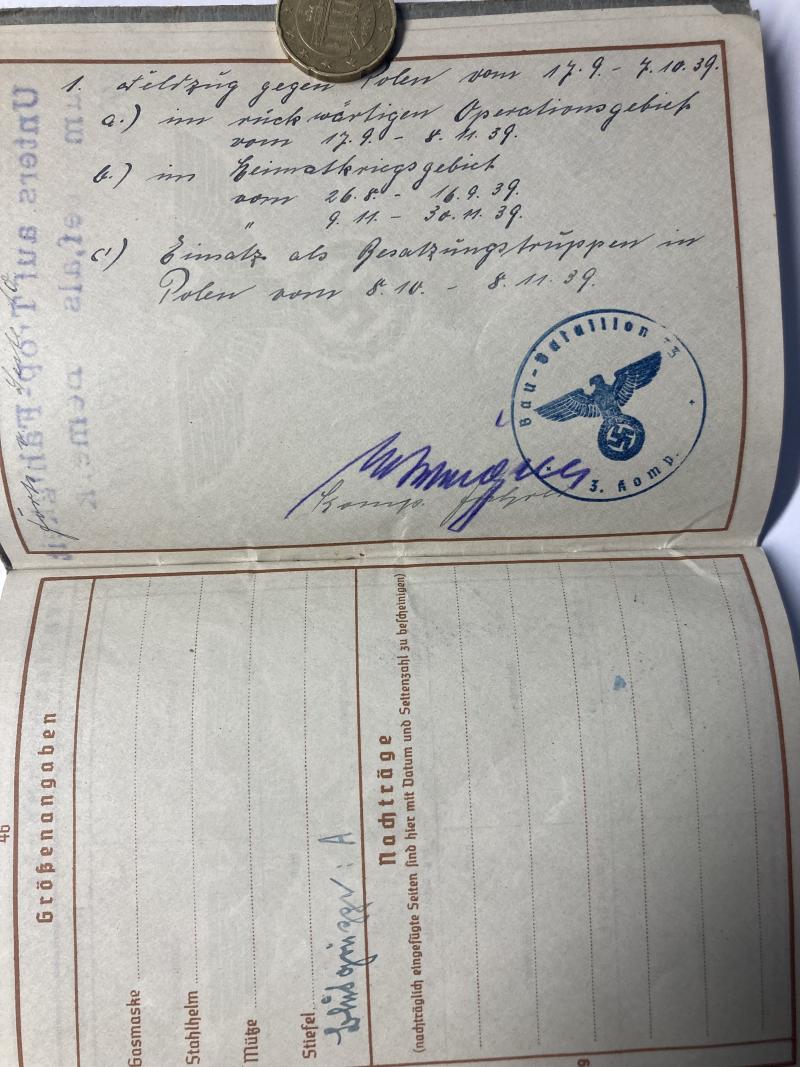 1. Feldzug gegen Polen vom 17.9. - 7.10.39.
a.) im rückwärtigen Operationsgebiet
vom 17.9. - 8.11.39.
b.) im Heimatkriegsgebiet
vom 26.8. - 16.9.39.
" 9.11. - 30.11.39.
c) Einsatz als Besatzungstruppen in
Polen vom 8.10. - 8.11.39.
Bau-Bataillon
3. Komp.
Komp. Führer
46
Größenangaben
Gasmaske
Stahlhelm
Mütze
Stiefel
Blutgruppe: A
Nachträge
(nachträglich eingefügte Seiten sind hier mit Datum und Seitenzahl zu bescheinigen)